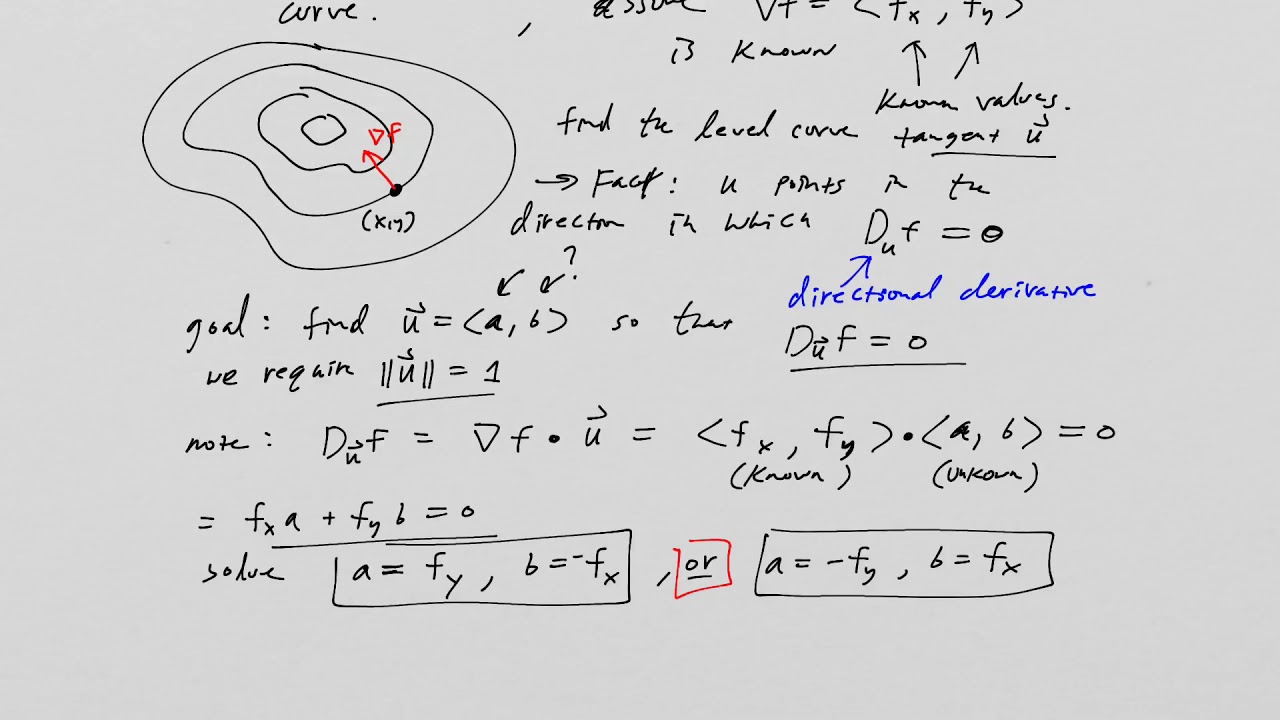 curve.
, assume ∇f = <fx, fy>
is known
known values.
find the level curve tangent u⃗
→ Fact: u points in the
direction in which Duf = 0
directional derivative
∇f
(x,y)
?
goal: find u⃗ = <a, b> so that
Du⃗f = 0
we require ||u⃗|| = 1
note: Du⃗f = ∇f • u⃗ = <fx, fy> • <a, b> = 0
(known) (unkown)
= fx a + fy b = 0
solve a = fy, b = -fx , or a = -fy, b = fx